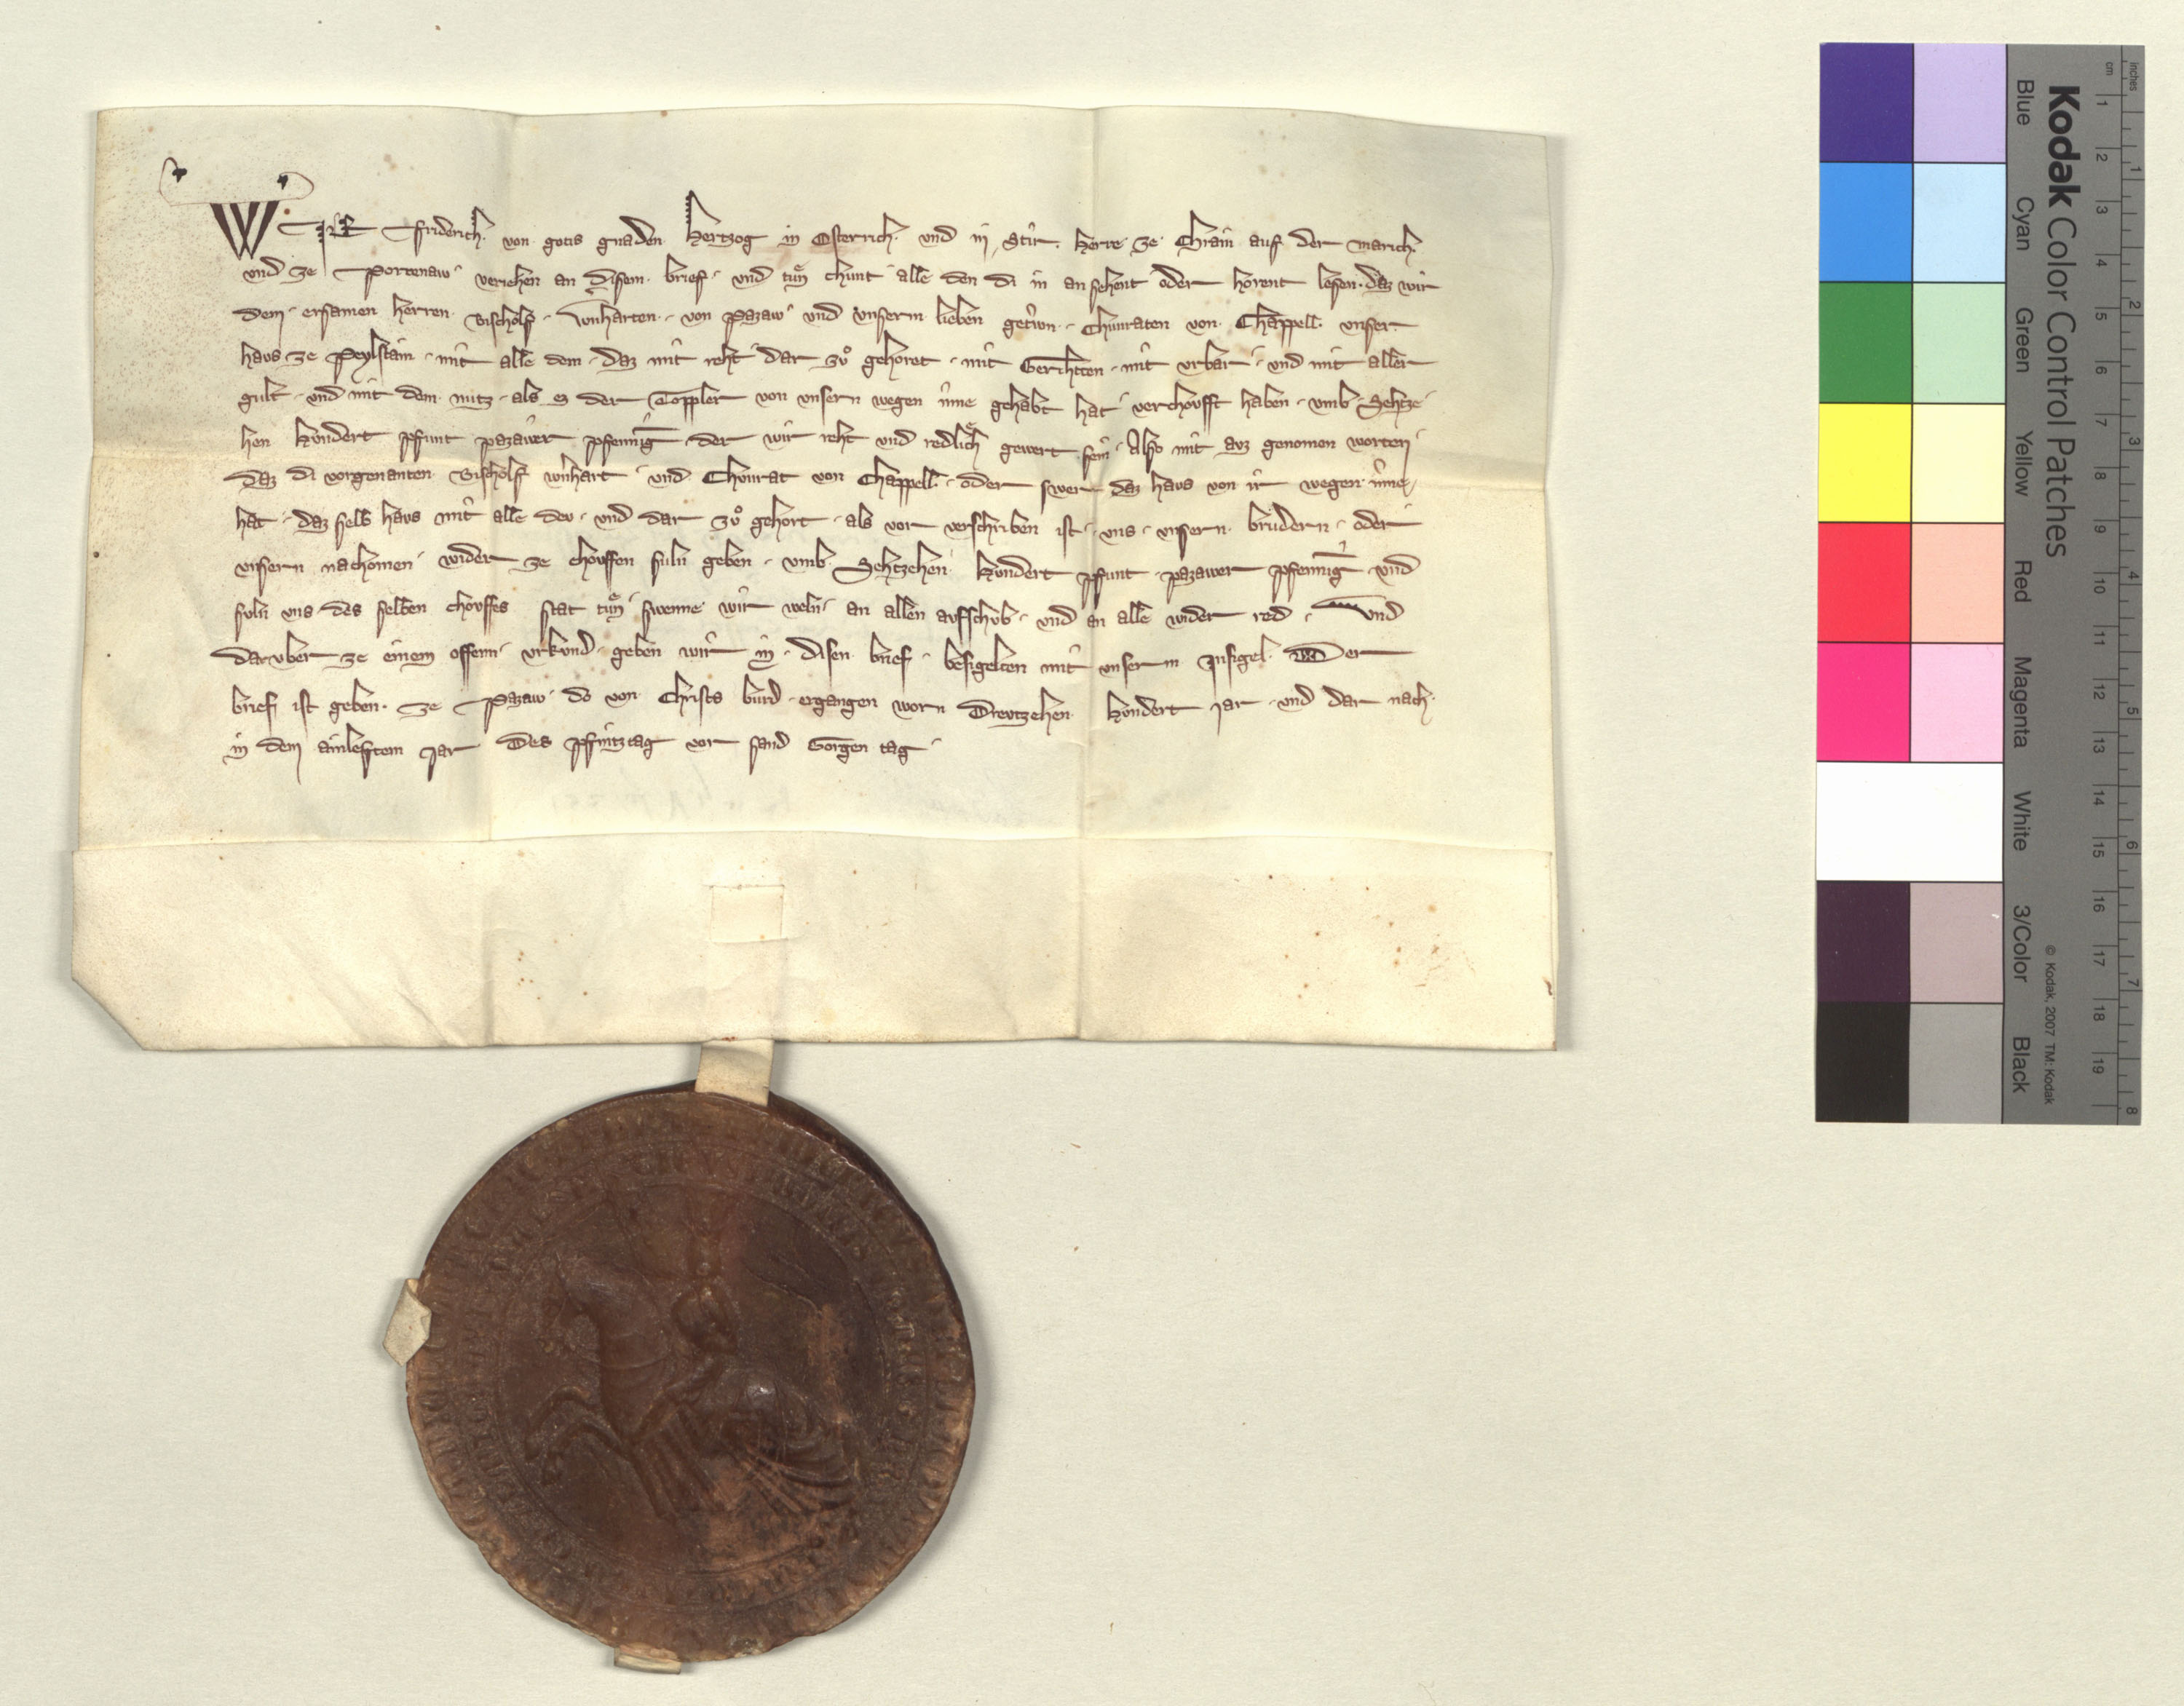 WIR Friderich von gotis gnaden Hertzog in Osterrich und in Stir. herre ze Chrain auf der marich
und ze Portenaw veriehen an disem brief und tuͦn chunt alle den di in an sehent oder hôrent lesen daz wir
dem ersamen herren Bischolf Wernharten von Pazaw und unserm lieben getriwn Chunraten von Chappell unser
haus ze Peylstain mit alle dem daz mit reht dar zuͦ gehoret mit Gerihtten mit urbar und mit aller
gult und mit dem nutz als ez der Toppler von unsern wegen inne gehabt hat verchouft haben umb Sehtze
hen hundert pfunt pazawer pfenning der wir reht und redlich gewert sein Also mit auz genomen worten
daz di vorgenanten Bischolf wernhart und Chunrat von Chappell oder swer daz haus von ir wegen inne
hat daz selb haus mit alle dev und dar zuͦ gehort als vor verschriben ist uns unsern brudern oder
unsern nachomen wider ze chouffen suln geben umb Sehtzehen hundert pfunt pazawer pfenning und
suln uns des selben chouffes stat tuͦn swenne wir weln an allen aufschub und an alle wider red Und
daruber ze einem offenn urkund geben wir in disen brief besigelten mit unserm Insigel Der
brief ist geben ze Pazaw do von Christs burd ergangen worn Dreutzehen hundert iar und dar nach
in dem ainleftem Jar Des Pfintztag vor sand Gorgen tag
Kodak Color Control Patches
Blue Cyan Green Yellow Red Magenta White 3/Color Black
© Kodak, 2007 TM: Kodak
cm 1 2 3 4 5 6 7 8 9 10 11 12 13 14 15 16 17 18 19
inches 1 2 3 4 5 6 7 8